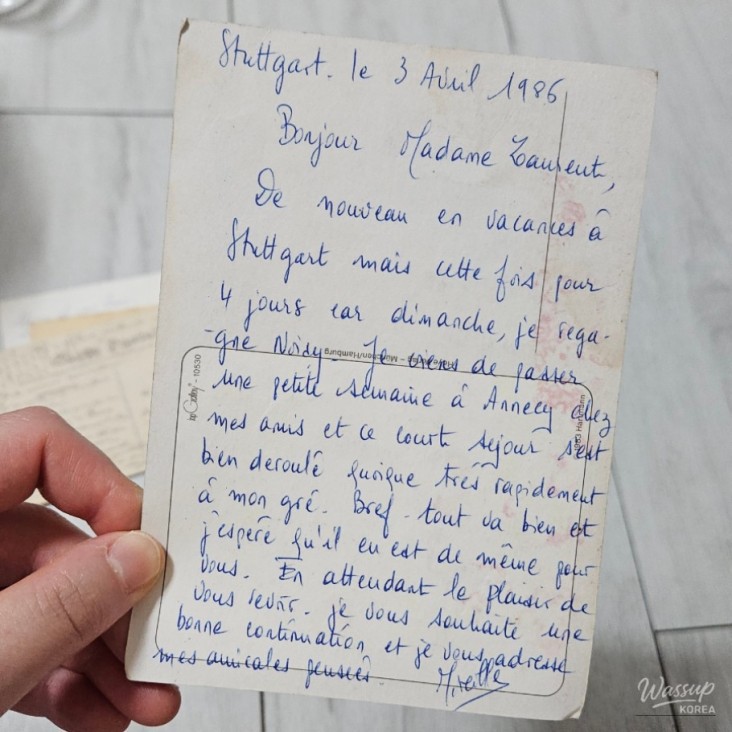 Stuttgart. le 3 Avril 1986
Bonjour Madame Laurent,
De nouveau en vacances à
Stuttgart mais cette fois pour
4 jours car dimanche, je rega-
-gne Noisy. Je viens de passer
une petite semaine à Annecy chez
mes amis et ce court séjour s'est
bien deroulé quoique très rapidement
à mon gré. Bref. tout va bien et
j'espère qu'il en est de même pour
vous. En attendant le plaisir de
vous revoir. je vous souhaite une
bonne continuation et je vous adresse
mes amicales pensées.
Mireille
München/Hamburg
10530
Wassup
KOREA